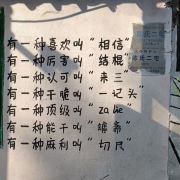 有一种喜欢叫“相信”
有一种厉害叫“结棍”
有一种认可叫“来三”
有一种干脆叫“一记头”
有一种顶级叫“za
有一种能干叫
有一种麻利叫“切尺”